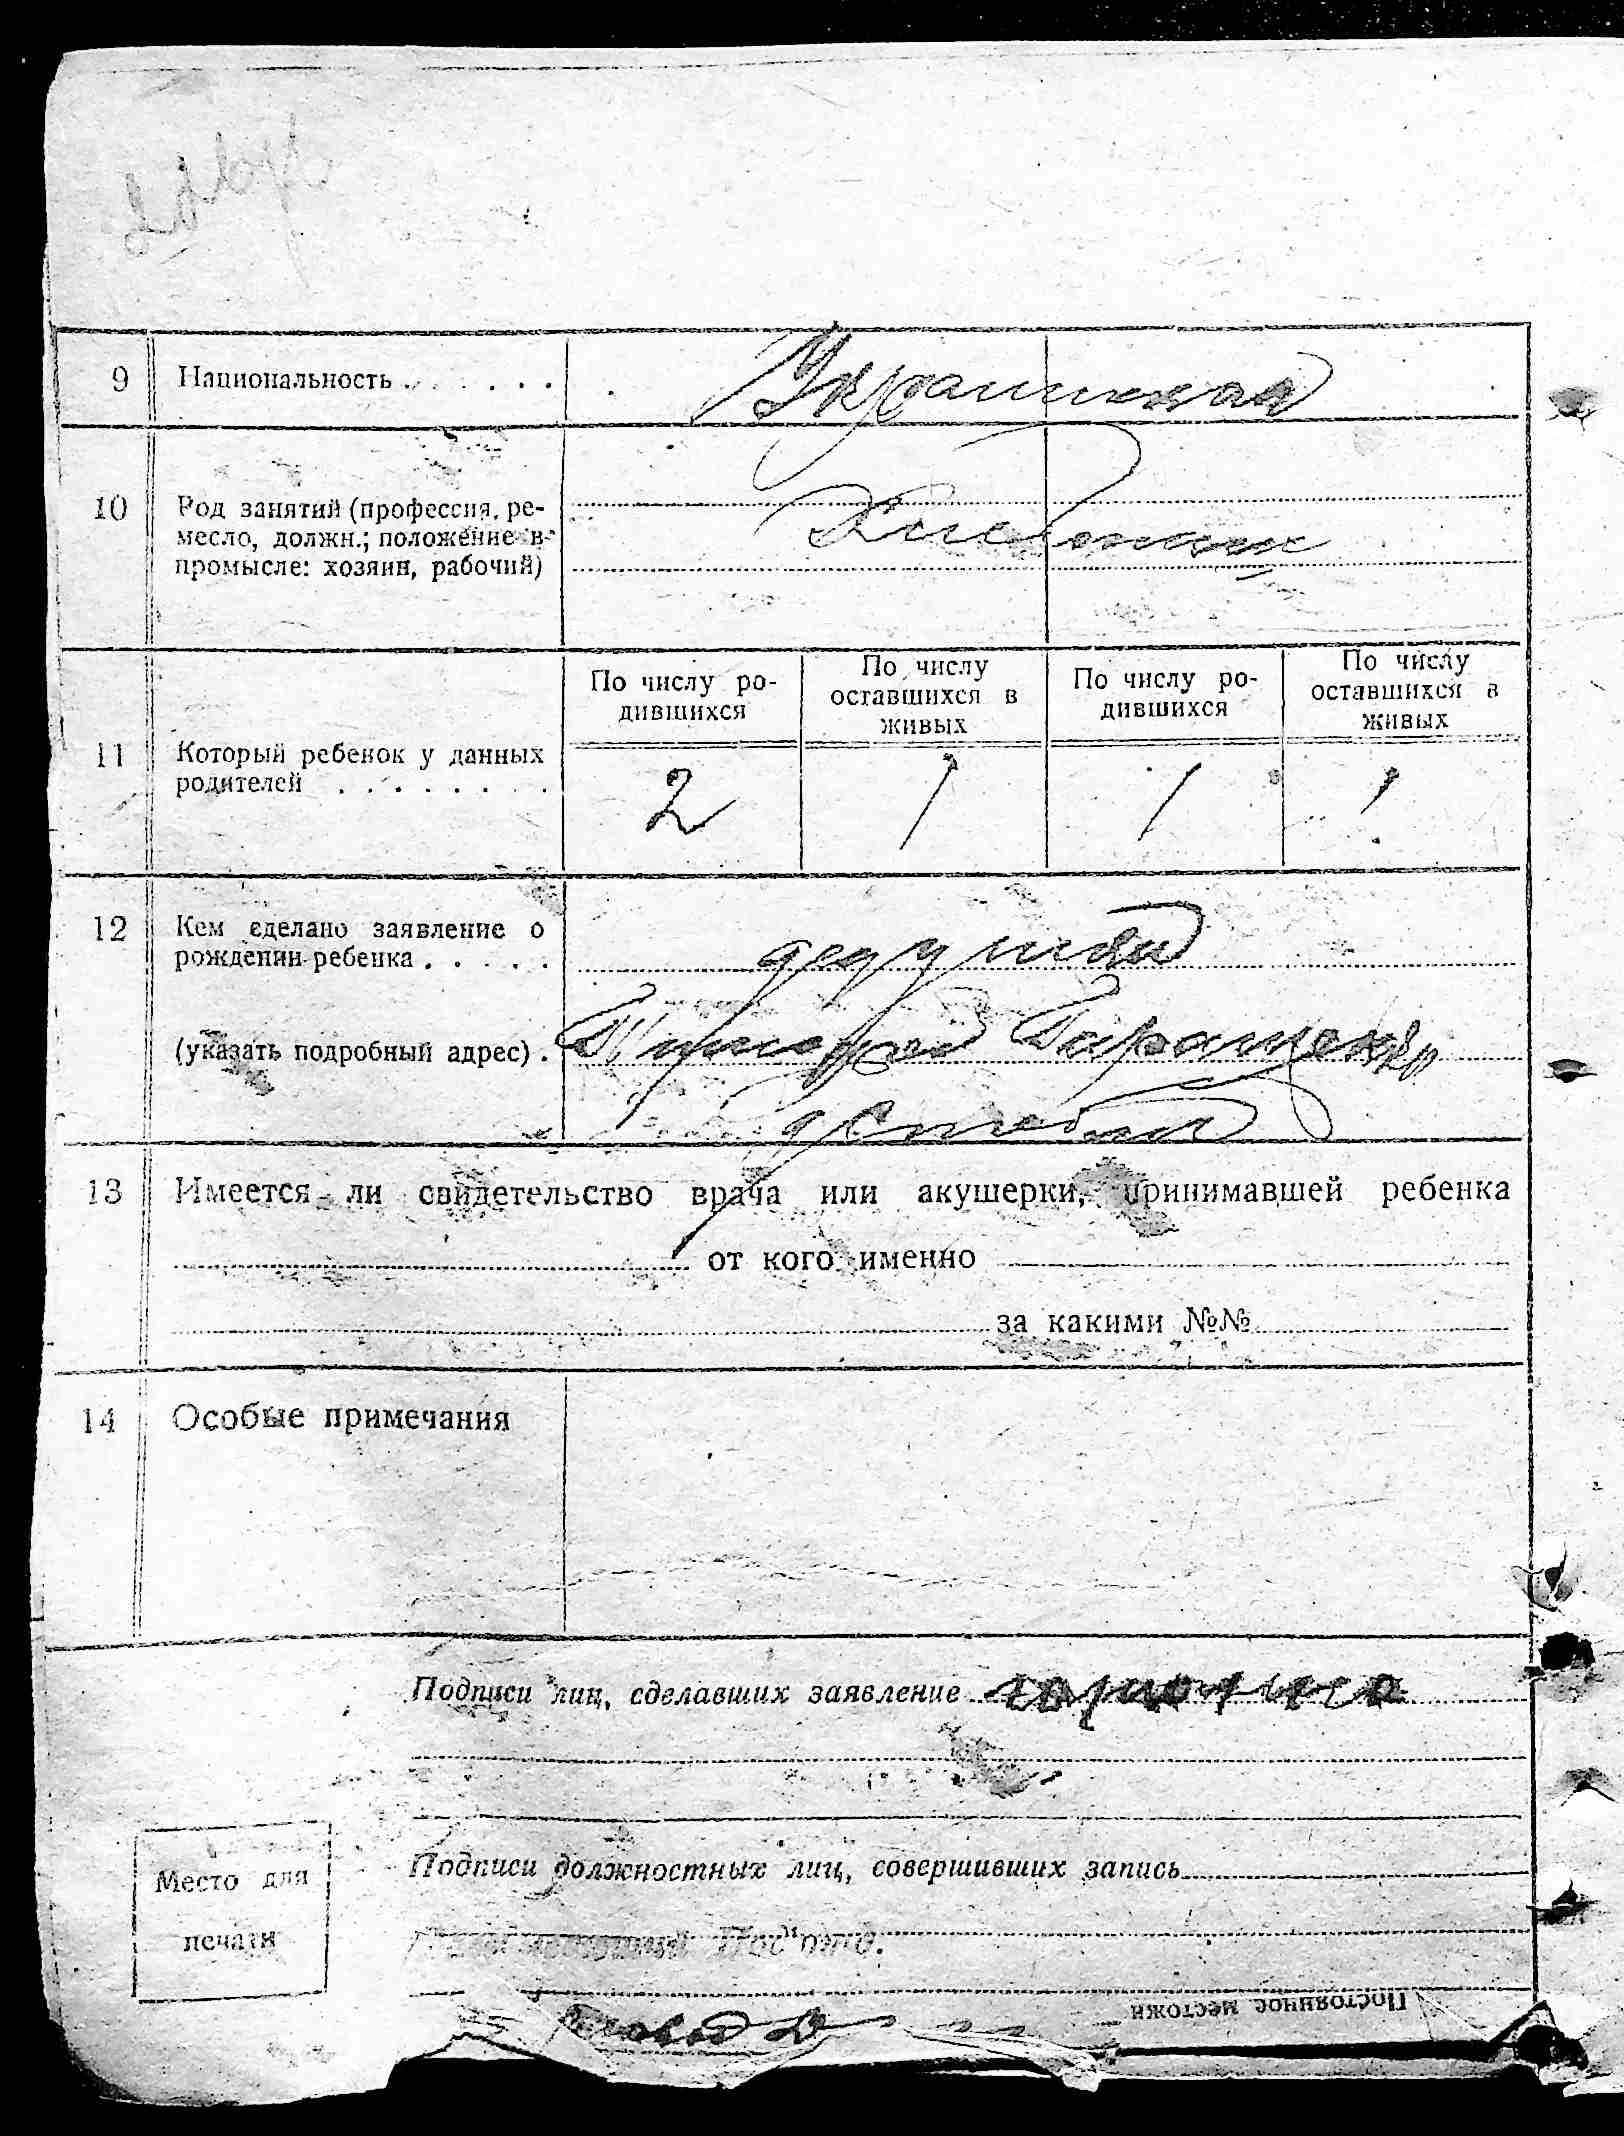 9 Национальность . . . . . . . Украинская
10 Род занятий (профессия, ре-
месло, должн.; положение в
промысле: хозяин, рабочий)
По числу ро-
дившихся
По числу
оставшихся в
живых
По числу ро-
дившихся
По числу
оставшихся в
живых
11 Который ребенок у данных
родителей . . . . . . . .
2 1 1 1
12 Кем сделано заявление о
рождении ребенка . . . . . дедушка
(указать подробный адрес) .
13 Имеется ли свидетельство врача или акушерки, принимавшей ребенка
от кого именно
за какими №№
14 Особые примечания
Подписи лиц, сделавших заявление
Подписи должностных лиц, совершивших запись
Место для
печати
Постоянное местожи